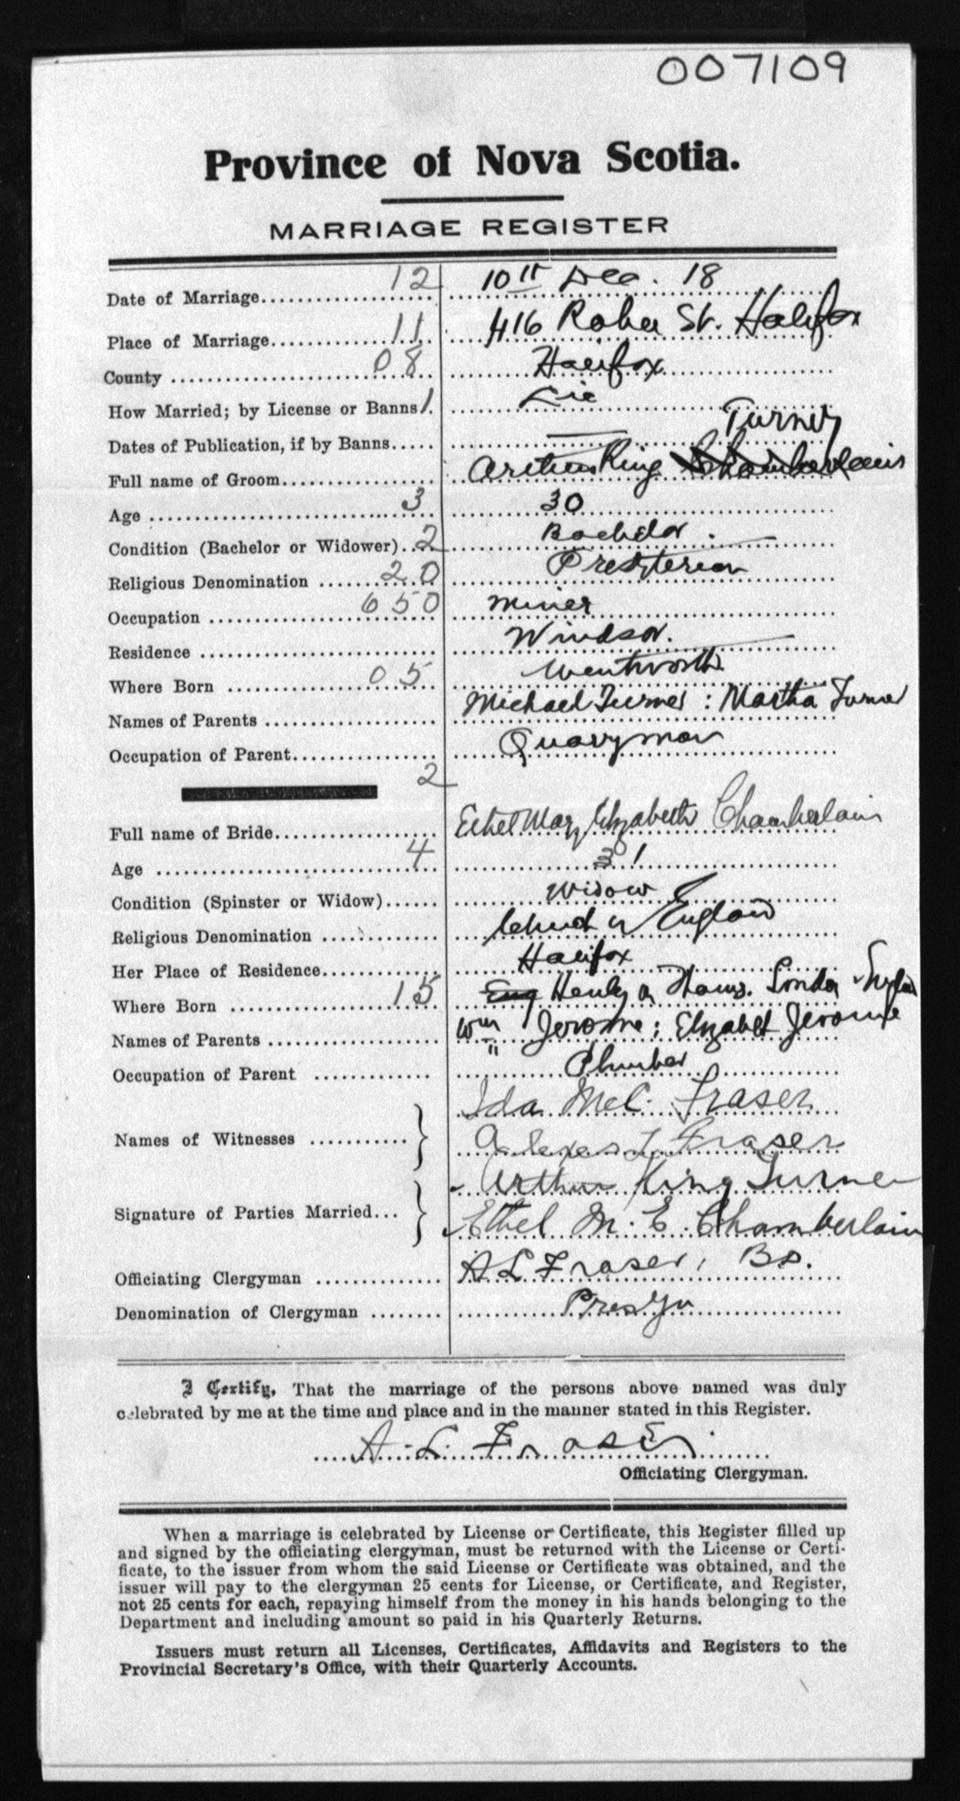 007109
Province of Nova Scotia.
MARRIAGE REGISTER
Date of Marriage 12 10th Dec. 18
Place of Marriage 11 416 St. Halifax
County 08 Halifax
How Married; by License or Banns 1 Lic
Dates of Publication, if by Banns —
Turner
Full name of Groom Arthur King Chamberlain
Age 3 30
Condition (Bachelor or Widower) 2 Bachelor
Religious Denomination 20 Presbyterian
Occupation 650 Miner
Residence Windsor.
Where Born 05 Wentworth
Names of Parents Michael Turner : Martha Turner
Occupation of Parent Quarryman
2
Full name of Bride Ethel May Elizabeth Chamberlain
Age 4 31
Condition (Spinster or Widow) Widow
Religious Denomination Church of England
Her Place of Residence Halifax
Where Born 15 Eng Henley on Thames. London England
Names of Parents Wm Jerome ; Elizabeth Jerome
Occupation of Parent " Plumber
Ida McC. Fraser
Names of Witnesses L Fraser
Arthur King Turner
Signature of Parties Married... Ethel M. E. Chamberlain
Officiating Clergyman A L Fraser, BD.
Denomination of Clergyman
I Certify, That the marriage of the persons above named was duly
celebrated by me at the time and place and in the manner stated in this Register.
A. L. Fraser
Officiating Clergyman.
When a marriage is celebrated by License or Certificate, this Register filled up
and signed by the officiating clergyman, must be returned with the License or Certi-
ficate, to the issuer from whom the said License or Certificate was obtained, and the
issuer will pay to the clergyman 25 cents for License, or Certificate, and Register,
not 25 cents for each, repaying himself from the money in his hands belonging to the
Department and including amount so paid in his Quarterly Returns.
Issuers must return all Licenses, Certificates, Affidavits and Registers to the
Provincial Secretary's Office, with their Quarterly Accounts.